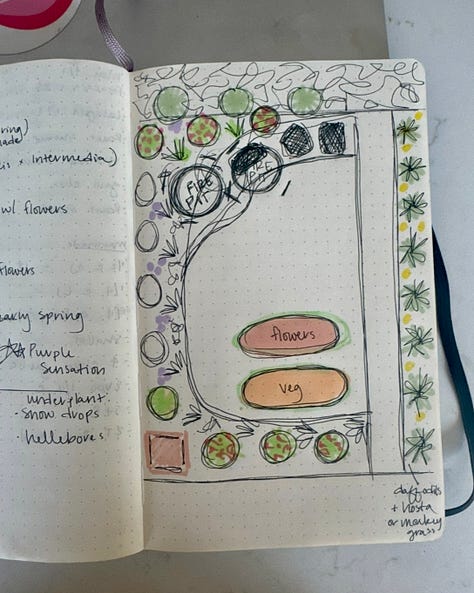 ring)
ade)
is x intermedia)
wl flowers
flowers
early spring
Purple
sensation
underplant
· snow drops
· hellebores
FIRE
PIT
flowers
veg
daffodils
+ hosta
or monkey
grass